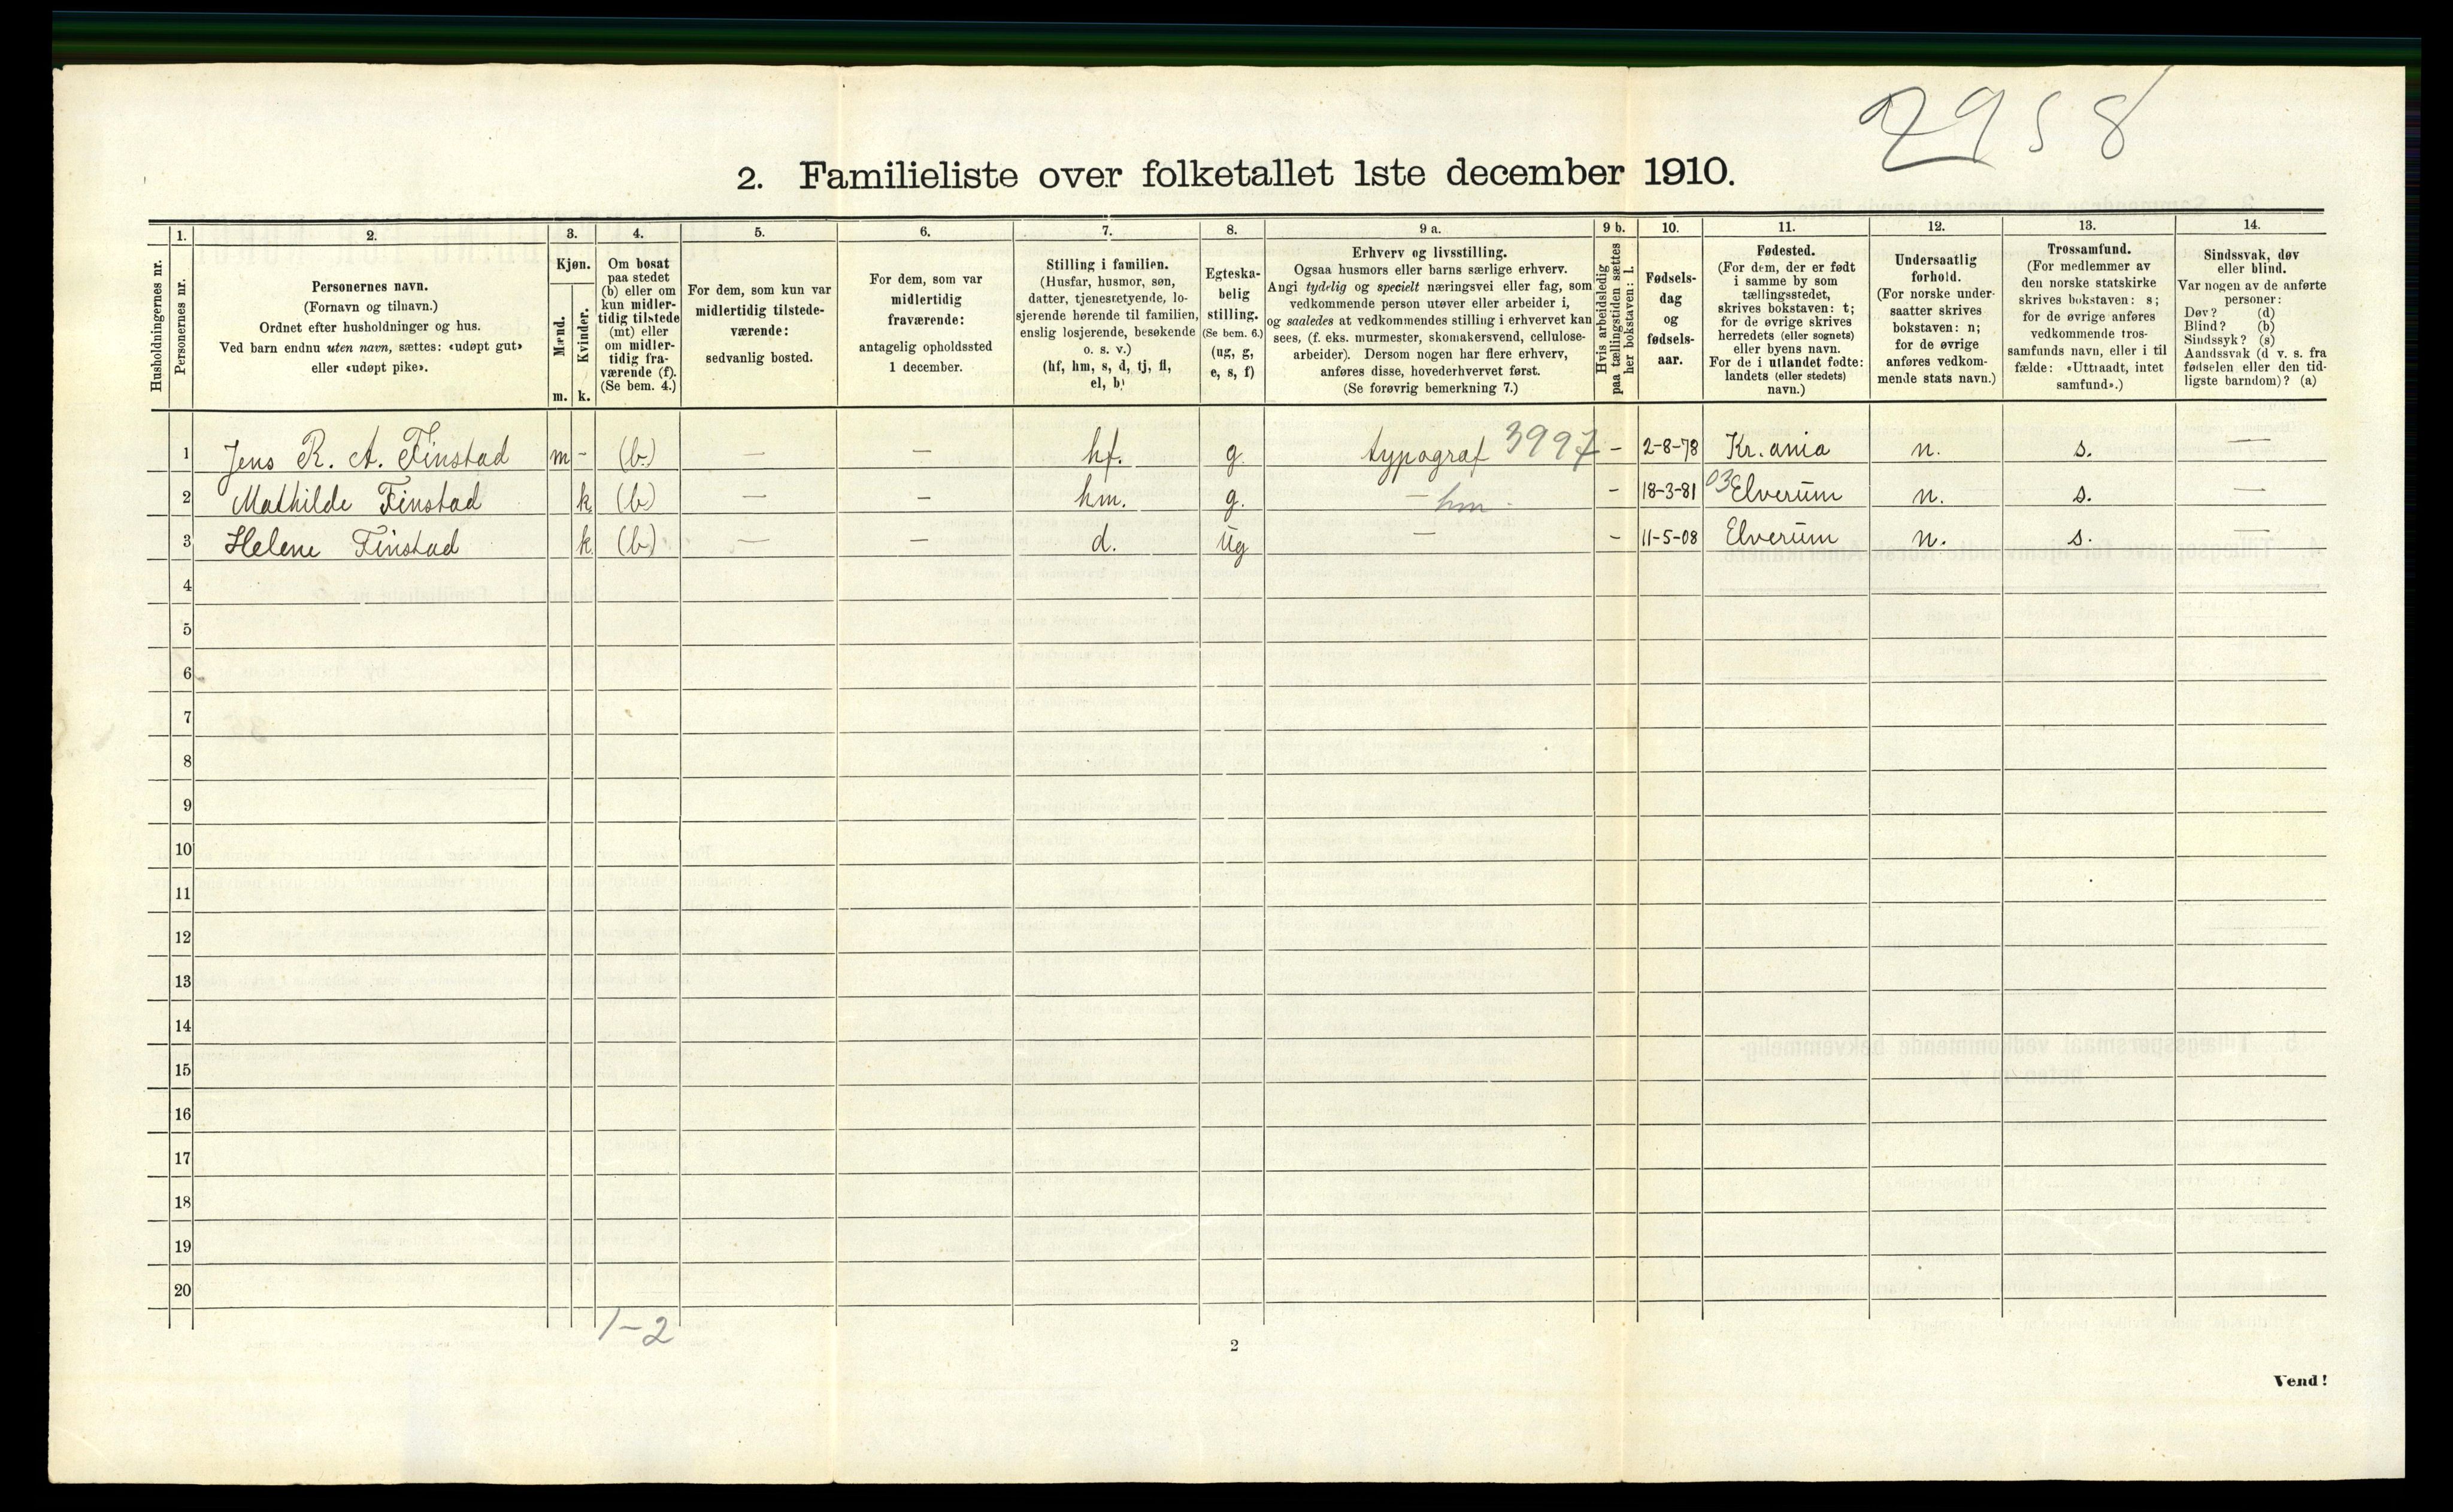 2958
2. Familieliste over folketallet 1ste december 1910.
Husholdningernes nr.
1.
Personernes nr.
2.
Personernes navn.
(Fornavn og tilnavn.)
Ordnet efter husholdninger og hus.
Ved barn endnu uten navn, sættes: «udøpt gut»
eller «udøpt pike».
3.
Kjøn.
Mænd.
Kvinder.
m. k.
4.
Om bosat
paa stedet
(b) eller om
kun midler-
tidig tilstede
(mt) eller
om midler-
tidig fra-
værende (f).
(Se bem. 4.)
5.
For dem, som kun var
midlertidig tilstede-
værende:
sedvanlig bosted.
6.
For dem, som var
midlertidig
fraværende:
antagelig opholdssted
1 december.
7.
Stilling i familien.
(Husfar, husmor, søn,
datter, tjenestetyende, lo-
sjerende hørende til familien,
enslig losjerende, besøkende
o. s. v.)
(hf, hm, s, d, tj, fl,
el, b)
8.
Egteska-
belig
stilling.
(Se bem. 6.)
(ug, g,
e, s, f)
9 a.
Erhverv og livsstilling.
Ogsaa husmors eller barns særlige erhverv.
Angi tydelig og specielt næringsvei eller fag, som
vedkommende person utøver eller arbeider i,
og saaledes at vedkommendes stilling i erhvervet kan
sees, (f. eks. murmester, skomakersvend, cellulose-
arbeider). Dersom nogen har flere erhverv,
anføres disse, hovederhvervet først.
(Se forøvrig bemerkning 7.)
9 b.
Hvis arbeidsledig
paa tællingstiden sættes
her bokstaven: l.
10.
Fødsels-
dag
og
fødsels-
aar.
11.
Fødested.
(For dem, der er født
i samme by som
tællingsstedet,
skrives bokstaven: t;
for de øvrige skrives
herredets (eller sognets)
eller byens navn.
For de i utlandet fødte:
landets (eller stedets)
navn.)
12.
Undersaatlig
forhold.
(For norske under-
saatter skrives
bokstaven: n;
for de øvrige
anføres vedkom-
mende stats navn.)
13.
Trossamfund.
(For medlemmer av
den norske statskirke
skrives bokstaven: s;
for de øvrige anføres
vedkommende tros-
samfunds navn, eller i til
fælde: «Uttraadt, intet
samfund».)
14.
Sindssvak, døv
eller blind.
Var nogen av de anførte
personer:
Døv? (d)
Blind? (b)
Sindssyk? (s)
Aandssvak (d v. s. fra
fødselen eller den tid-
ligste barndom)? (a)
1 Jens R. A. Finstad m - (b) — — hf. g. typograf 3997 - 2-8-78 Kr.ania n. s. —
2 Mathilde Finstad k (b) — — hm. g. - hm - - 18-3-81 03 Elverum n. s. —
3 Helene Finstad k (b) — — d. ug — - 11-5-08 Elverum n. s. —
4
5
6
7
8
9
10
11
12
13
14
15
16
17
18
19
20
1-2
2
Vend!